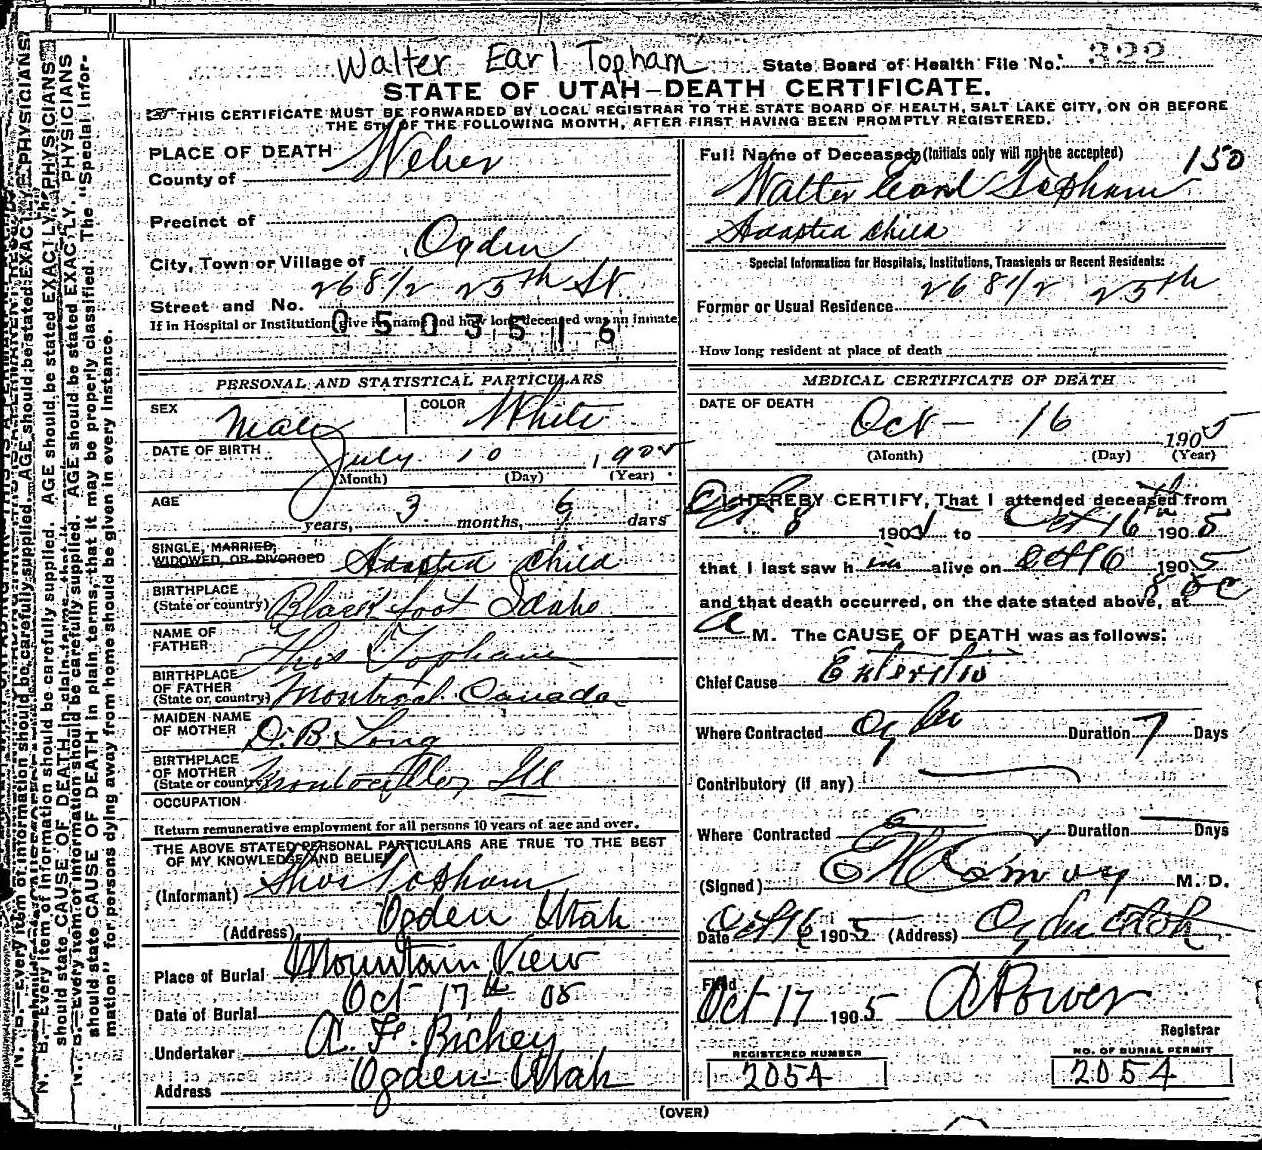 Walter Earl Topham
State Board of Health File No. 322
STATE OF UTAH—DEATH CERTIFICATE.
THIS CERTIFICATE MUST BE FORWARDED BY LOCAL REGISTRAR TO THE STATE BOARD OF HEALTH, SALT LAKE CITY, ON OR BEFORE
THE 5TH OF THE FOLLOWING MONTH, AFTER FIRST HAVING BEEN PROMPTLY REGISTERED.
PLACE OF DEATH
County of Weber
Precinct of
City, Town or Village of Ogden
Street and No. 268 1/2 25th St
If in Hospital or Institution, give its name and how long deceased was an inmate
0503516
PERSONAL AND STATISTICAL PARTICULARS
SEX Male COLOR White
DATE OF BIRTH July 10, 1905
(Month) (Day) (Year)
AGE years, 3 months, 6 days
SINGLE, MARRIED,
WIDOWED, OR DIVORCED Adopted Child
BIRTHPLACE
(State or country) Blackfoot Idaho
NAME OF
FATHER Thos Topham
BIRTHPLACE
OF FATHER
(State or, country) Montreal Canada
MAIDEN NAME
OF MOTHER D. B. Long
BIRTHPLACE
OF MOTHER
(State or country) Ill
OCCUPATION
Return remunerative employment for all persons 10 years of age and over.
THE ABOVE STATED PERSONAL PARTICULARS ARE TRUE TO THE BEST
OF MY KNOWLEDGE AND BELIEF
(Informant) Thos Topham
(Address) Ogden Utah
Place of Burial Mountain View
Date of Burial Oct 17th 05
Undertaker A. F. Richey
Address Ogden Utah
Full Name of Deceased, (Initials only will not be accepted) 150
Walter Earl Topham
Adopted child
Special Information for Hospitals, Institutions, Transients or Recent Residents:
Former or Usual Residence 268 1/2 25th
How long resident at place of death
MEDICAL CERTIFICATE OF DEATH
DATE OF DEATH
Oct — 16 1905
(Month) (Day) (Year)
I HEREBY CERTIFY, That I attended deceased from
Oct 8 190 to Oct 16th 1905
that I last saw him alive on Oct 16 1905
and that death occurred, on the date stated above, at 8
A M. The CAUSE OF DEATH was as follows:
Chief Cause Enteritis
Where Contracted Ogden Duration 7 Days
Contributory (if any)
Where Contracted Duration Days
(Signed) M. D.
Date Oct 16 1905 (Address) Ogden Utah
Filed
Oct 17 1905 A Power
Registrar
REGISTERED NUMBER
2054
NO. OF BURIAL PERMIT
2054
(OVER)
N. B.—Every item of information should be carefully supplied. AGE should be stated EXACTLY. PHYSICIANS
should state CAUSE OF DEATH in plain terms, that it may be properly classified. The "Special Infor-
mation" for persons dying away from home should be given in every instance.